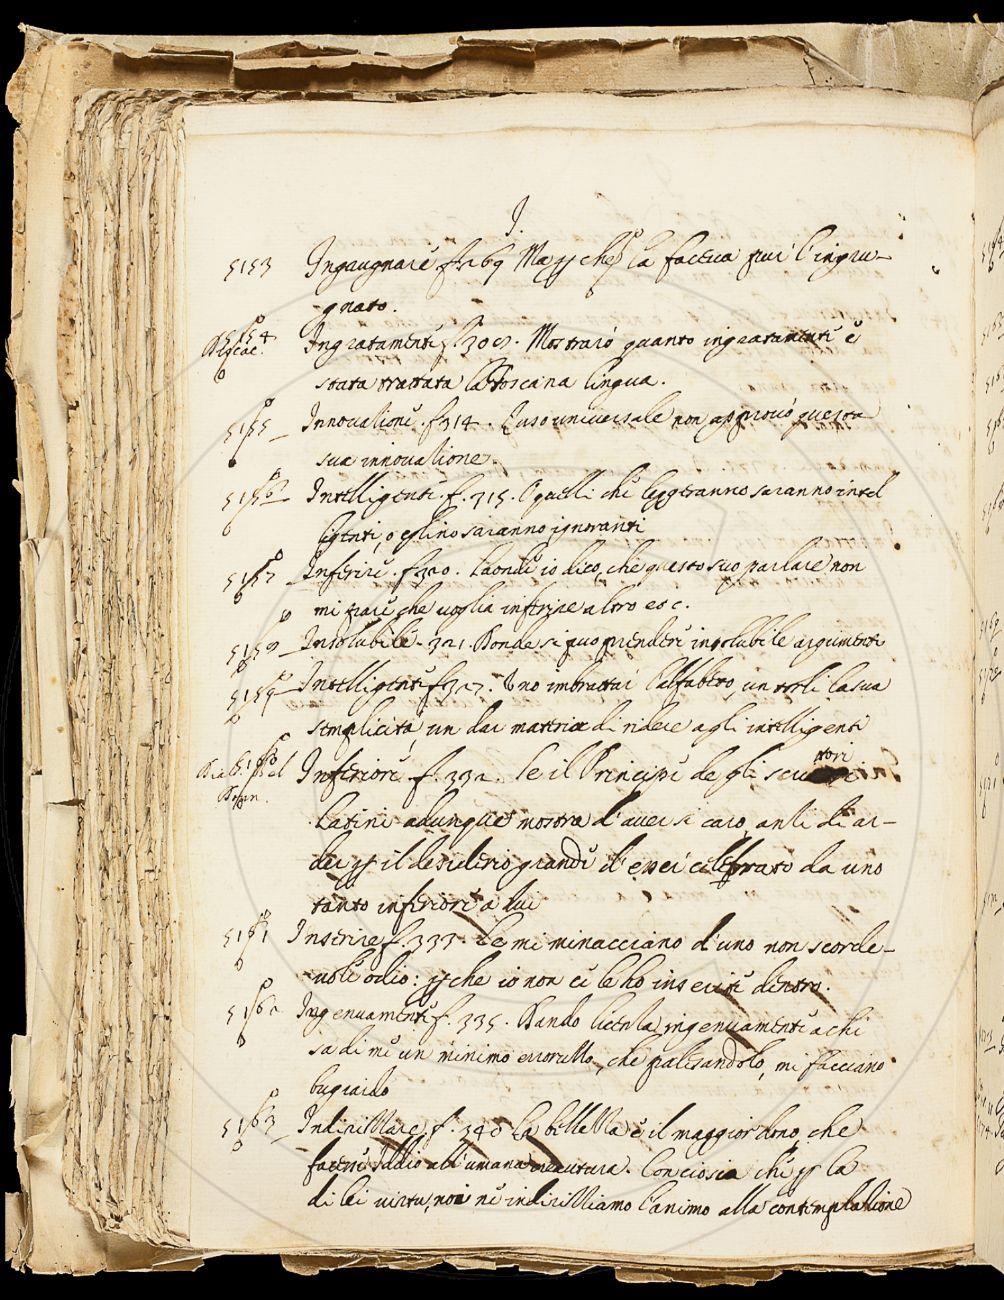 I.
5153 Ingaugnare f. 269 Ma che la faceua piu l'ingau-
gnato.
5154 Ingratamente f. 302. Mostrarò quanto ingratamente è
stata trattata la Toscana lingua.
5155 Innouatione. f. 314. L'uso uniuersale non approuò questa
sua innouatione.
5156 Intelligenti. f. 315. O quelli che leggeranno saranno intel
ligenti, o eglino saranno ignoranti
5157 Inferire. f. 320. Laonde io dico, che questo suo parlare non
mi pare che uoglia inferire altro esc.
5158 Insolubile. 321. Donde si puo prendere insolubile argumento
5159 Intelligenti f. 327. Uno imbrattar l'alfabeto, un torli la sua
semplicità, un dar materia di ridere agli intelligenti
Inferiore. f. 332. Se il Principe degli scrittori
Latini adunque mostra d'auer si caro, anzi di ar-
der il desiderio grande d'esser celebrato da uno
tanto inferiore a lui
5161 Inserire f. 333. Le mi minacciano d'uno non scorde-
uole odio: che io non ci le ho inserite dentro.
5162 Ingenuamente f. 335. Dando licenza ingenuamente a chi
sa di me un minimo erroruzzo, che palesandolo, mi facciano
bugiardo
5163 Indirizzare f. 340 La bellezza è il maggior dono, che
facesse Iddio all'umana creatura. Conciosia che la
di lei uirtu, noi ne indirizziamo l'animo alla contemplatione